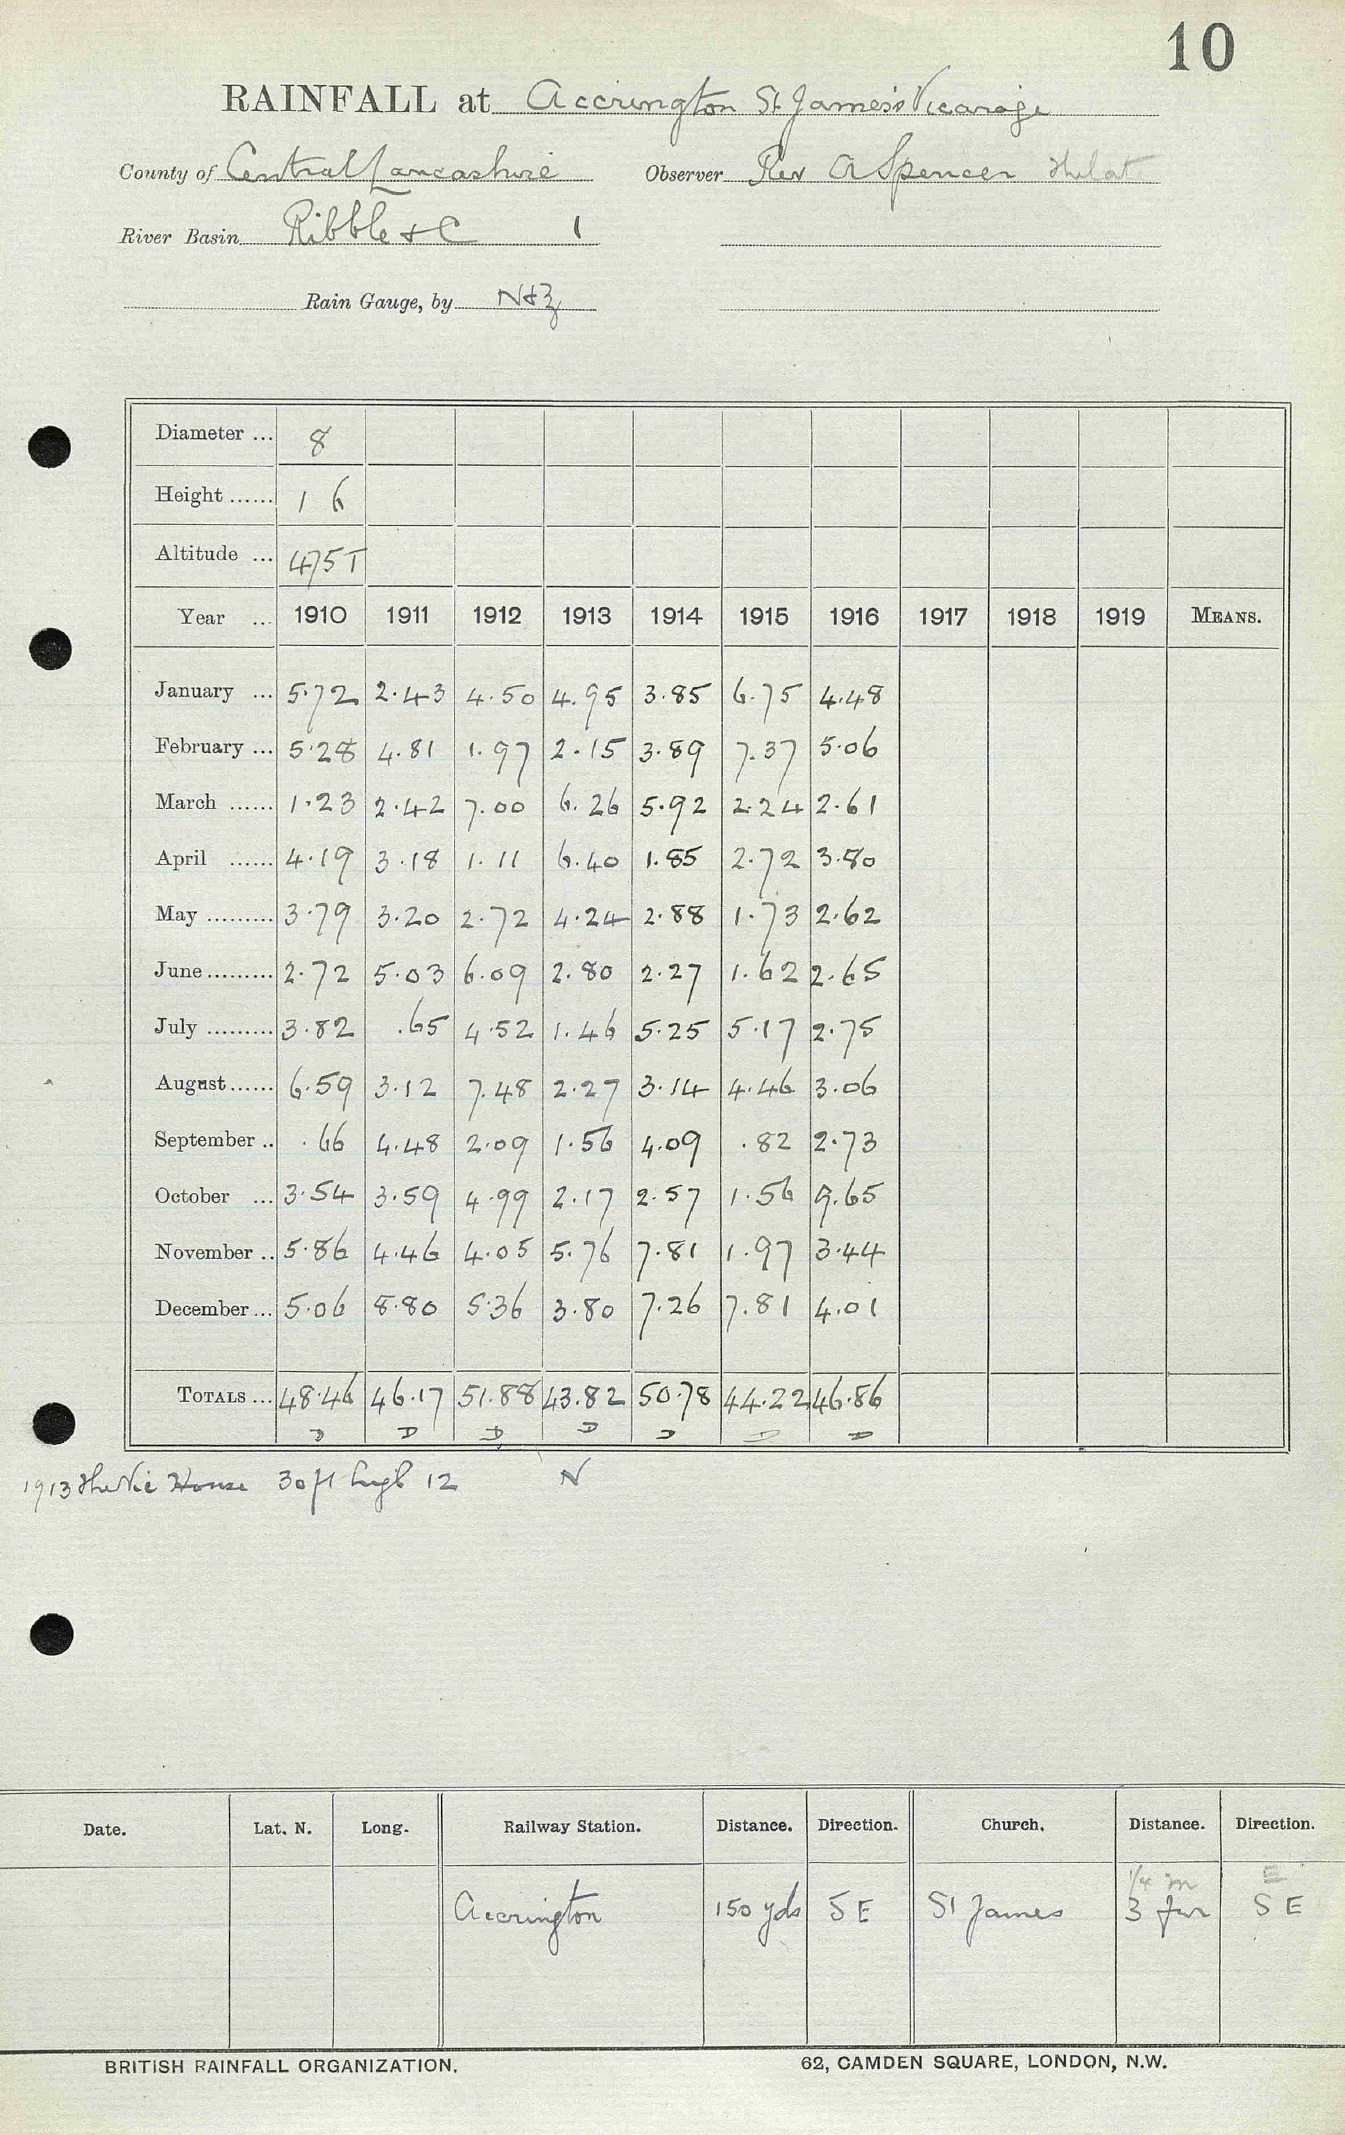 10
RAINFALL at Accrington St James's Vicarage
County of Central Lancashire Observer Rev A Spencer
River Basin Ribble & C 1
Rain Gauge, by N&Z
Diameter ... 8
Height ...... 1 6
Altitude ... 475 T
Year ... 1910 1911 1912 1913 1914 1915 1916 1917 1918 1919 MEANS.
January ... 5.72 2.43 4.50 4.95 3.85 6.75 4.48
February ... 5.28 4.81 1.97 2.15 3.89 7.37 5.06
March ...... 1.23 2.42 7.00 6.26 5.92 2.24 2.61
April ...... 4.19 3.18 1.11 6.40 1.85 2.72 3.80
May ......... 3.79 3.20 2.72 4.24 2.88 1.73 2.62
June ......... 2.72 5.03 6.09 2.80 2.27 1.62 2.65
July ......... 3.82 .65 4.52 1.46 5.25 5.17 2.75
August ...... 6.59 3.12 7.48 2.27 3.14 4.46 3.06
September .. .66 4.48 2.09 1.56 4.09 .82 2.73
October ... 3.54 3.59 4.99 2.17 2.57 1.56 9.65
November .. 5.86 4.46 4.05 5.76 7.81 1.97 3.44
December ... 5.06 8.80 5.36 3.80 7.26 7.81 4.01
TOTALS ... 48.46 46.17 51.88 43.82 50.78 44.22 46.86
D D D D D D D
1913 House 30 ft high 12 N
Date. Lat. N. Long. Railway Station. Distance. Direction. Church. Distance. Direction.
1/4 m E
Accrington 150 yds SE St James 3 fur SE
BRITISH RAINFALL ORGANIZATION. 62, CAMDEN SQUARE, LONDON, N.W.